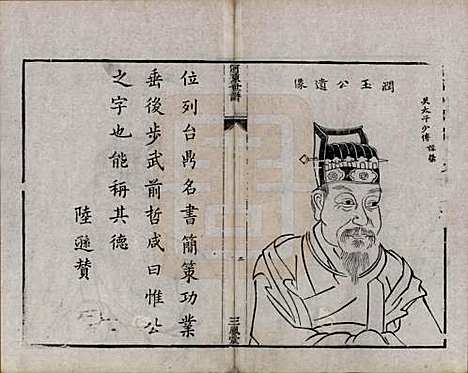 吳太子少傅諱榮
潤玉公遺像
河東世譜
三鳳堂
位列台鼎名書簡策功業
垂後步武前哲咸曰惟公
之字也能稱其德
陸遜贊